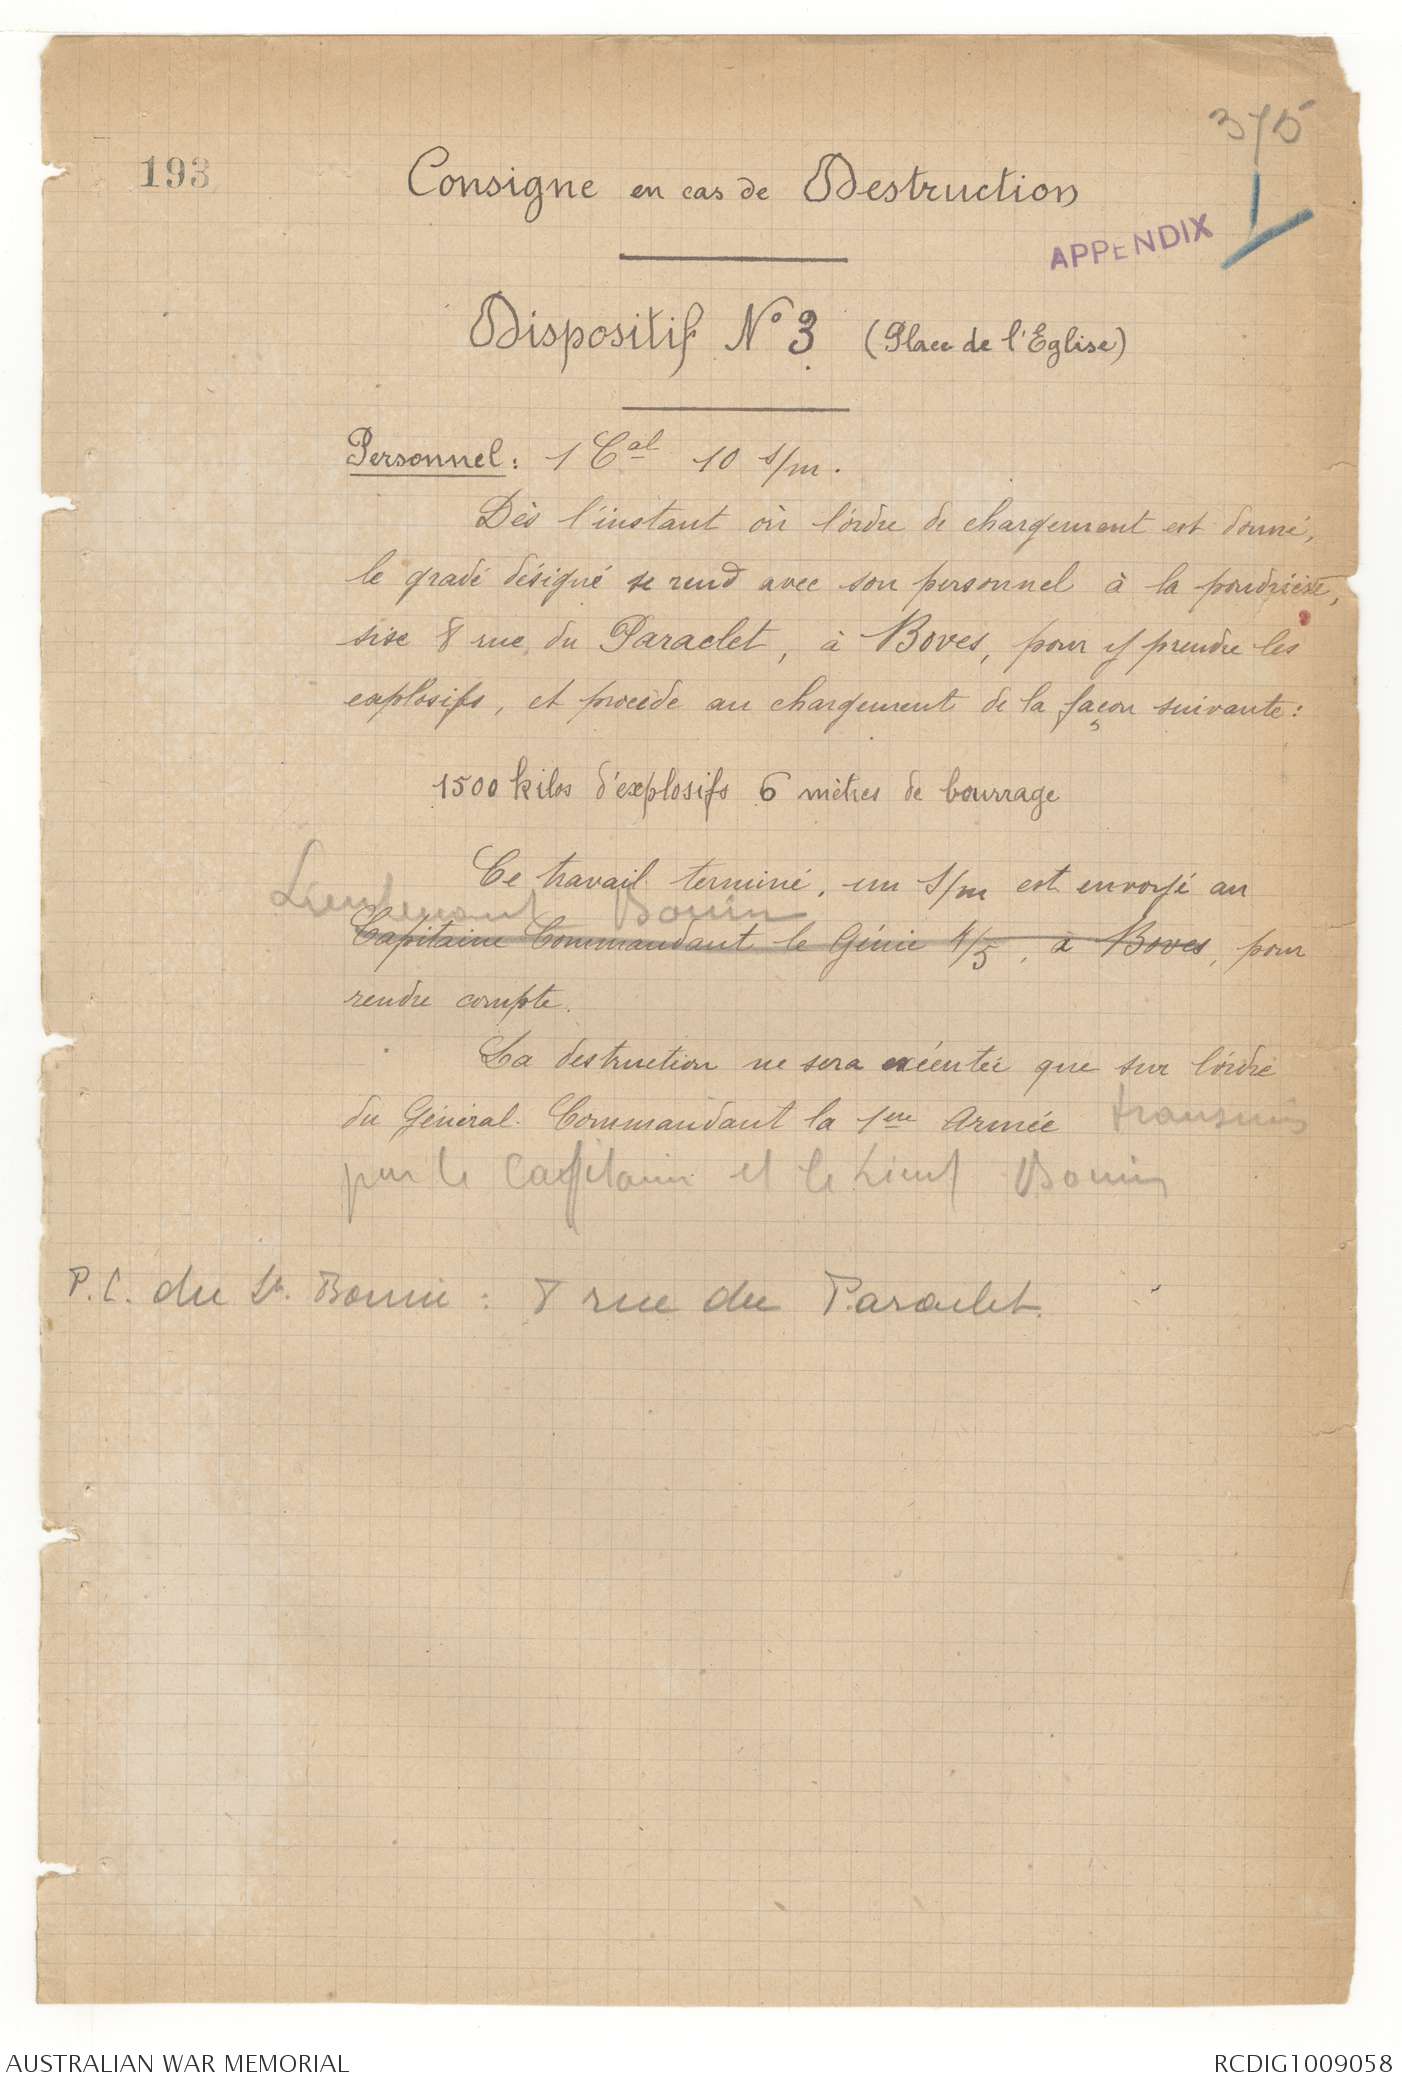 375
193
Consigne en cas de Destruction
APPENDIX
Dispositif N° 3 (Place de l'Eglise)
Personnel : 1 Cal 10 s/m.
Dès l'instant où l'ordre de chargement est donné,
le gradé désigné se rend avec son personnel à la poudrière,
sise 8 rue du Paraclet, à Boves, pour y prendre les
explosifs, et procède au chargement de la façon suivante :
1500 kilos d'explosifs 6 mètres de bourrage
Ce travail terminé, un s/m est envoyé au
Lieutenant Bouin
Capitaine Commandant le Génie 4/5, à Boves, pour
rendre compte.
La destruction ne sera exécutée que sur l'ordre
du Général Commandant la 1ère Armée transmis
par le Capitaine et le Lieut Bouin
P.C. du Lt. Bouin : 8 rue du Paraclet.
AUSTRALIAN WAR MEMORIAL
RCDIG1009058